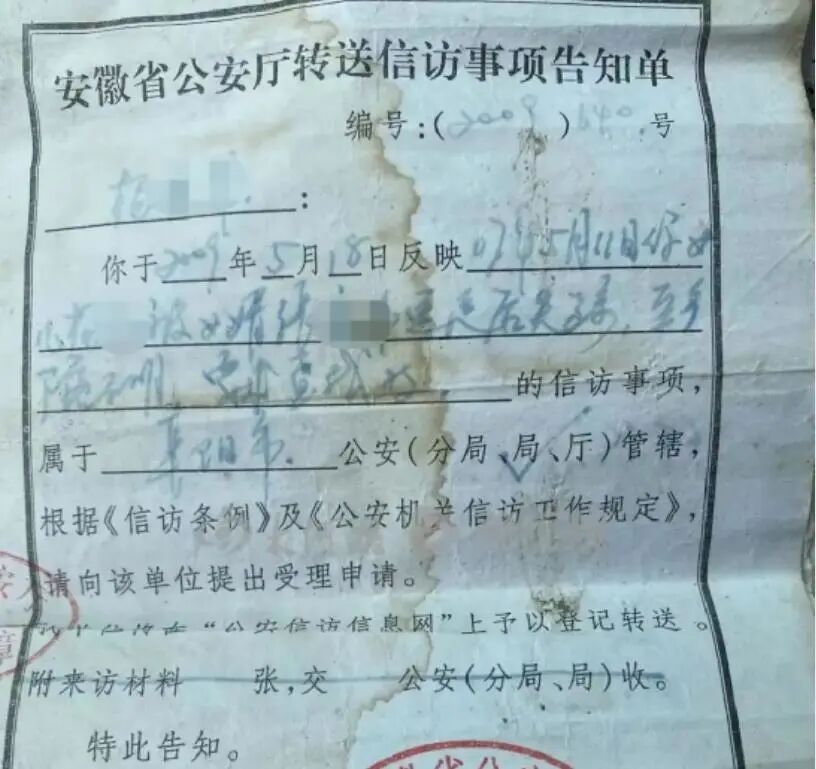 安徽省公安厅转送信访事项告知单
编号:(2009)640号
:
你于2009年5月18日反映07年5月11日你女
小 被女婿张 后失踪,至今
下落不明,要求查找的信访事项,
属于阜阳市公安(分局、局、厅)管辖,
根据《信访条例》及《公安机关信访工作规定》,
请向该单位提出受理申请。
“公安信访信息网”上予以登记转送。
附来访材料 张,交 公安(分局、局)收。
特此告知。